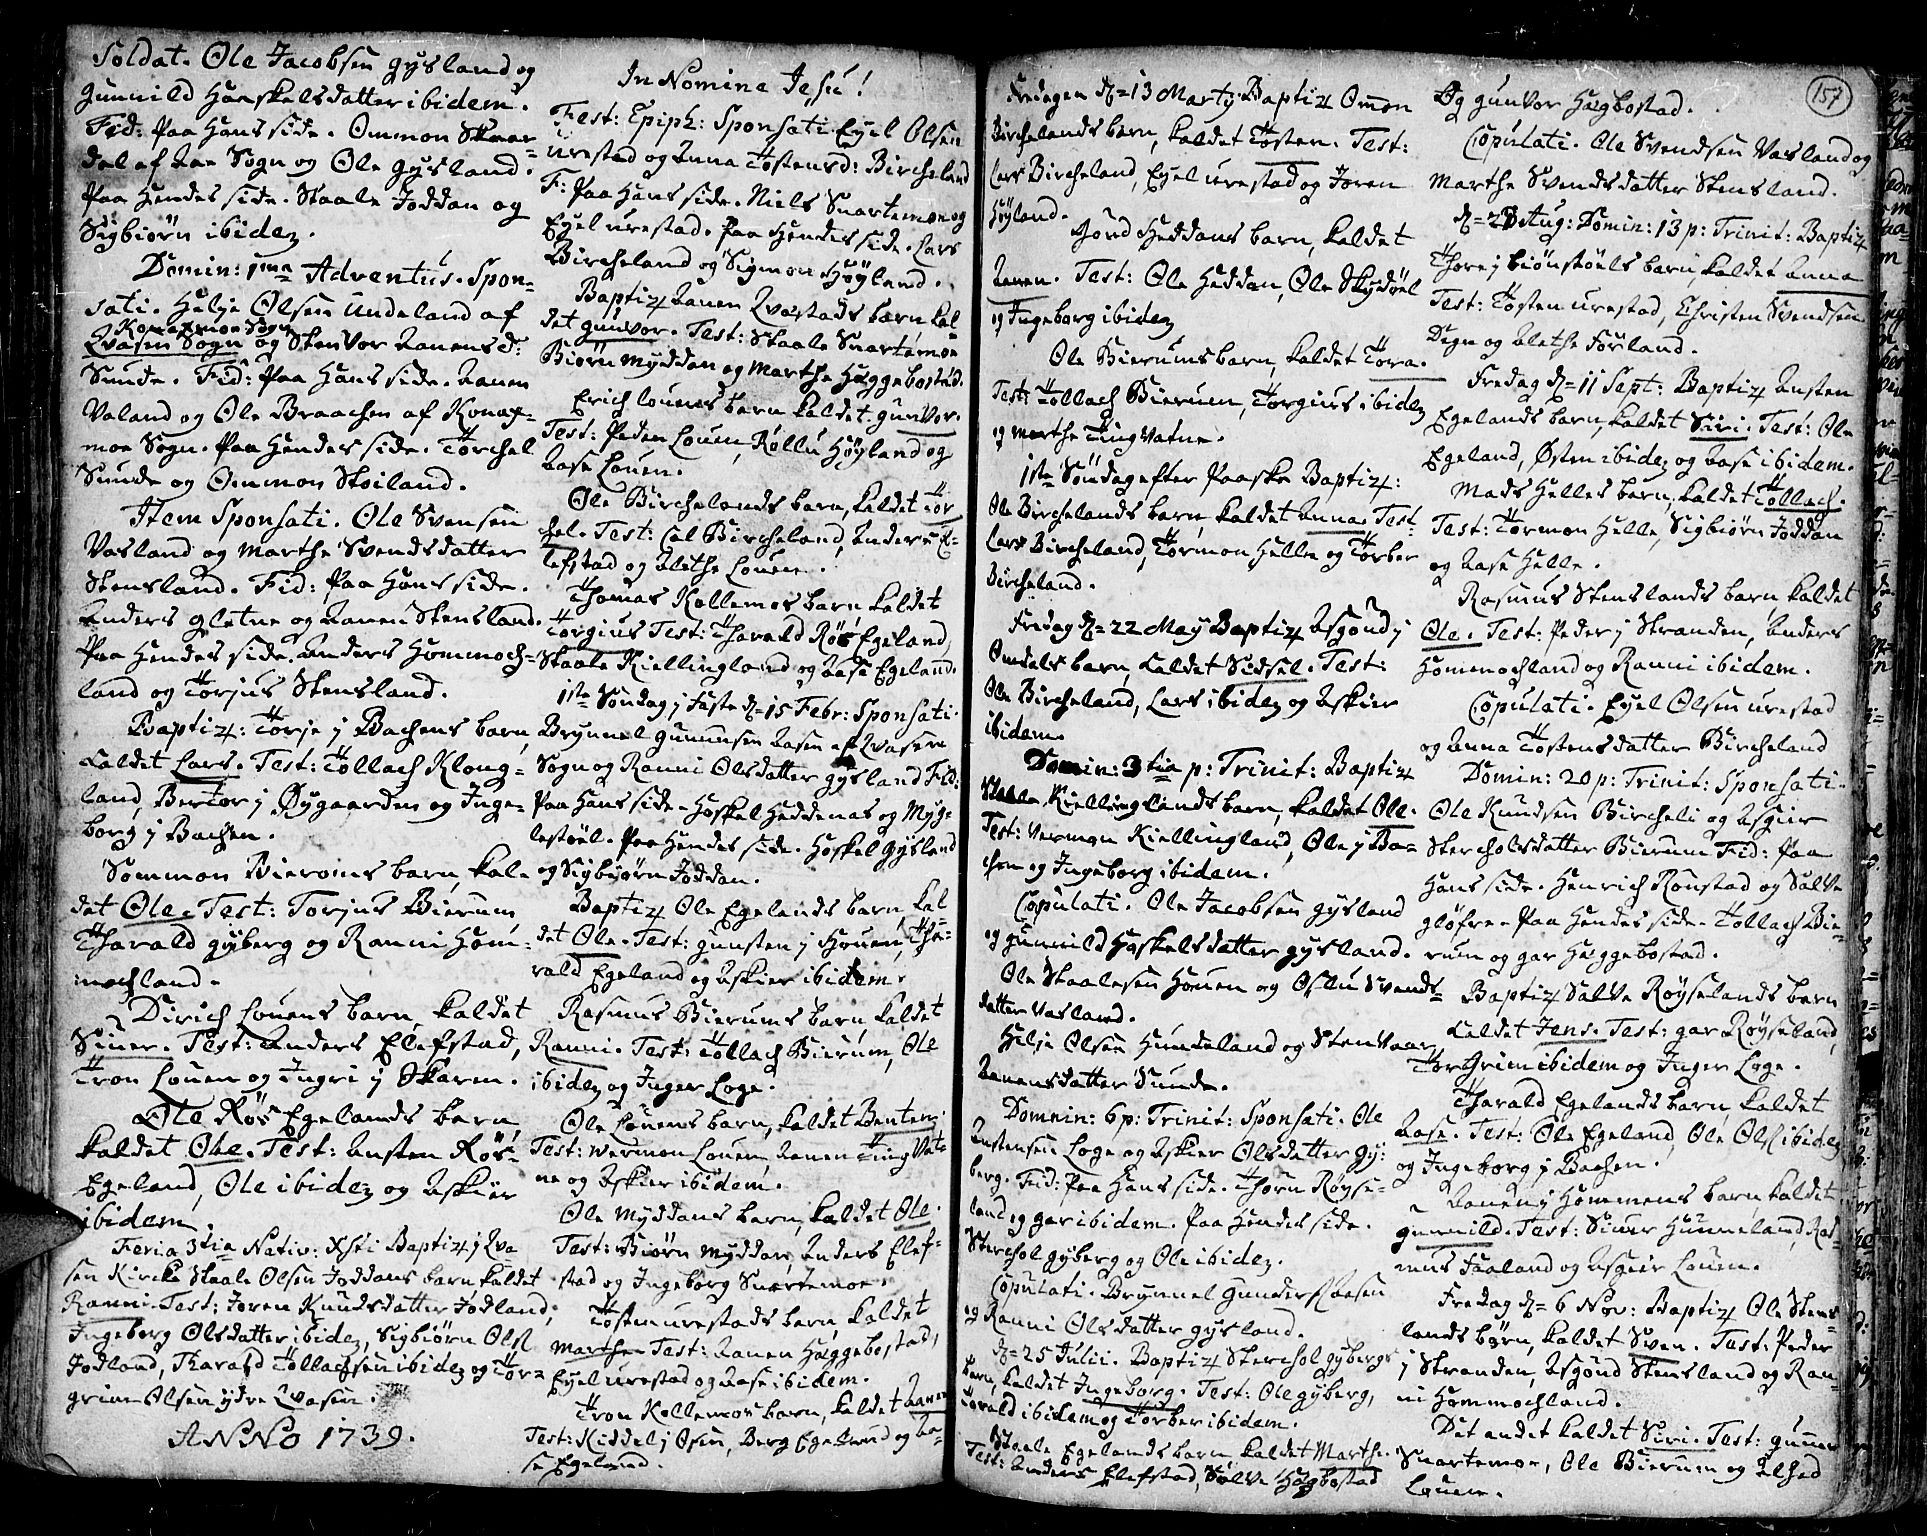 Soldat. Ole Jacobsen Gysland og
Gunnild Haaskelsdatter ibidem.
Fid: Paa Hans side. Ommon Skaar=
dal af Sogn og Ole Gysland.
Paa Hendes side. Staale Joddan og
Sigbiørn ibidem.
Domin: 1ma Adventus. Spon=
sati. Helje Olsen Undeland af
Konasmoe Sogn
Qvasen Sogn og StenVor Aanensd:
Sunde. Fid: Paa Hans side. Aanen
Valand og Ole Braachen af Konas=
moe Sogn. Paa Hendes side. Torchel
Sunde og Ommon Skoiland.
Item Sponsati. Ole Svensen
Vasland og Marthe Svendsdatter
Stensland. Fid: Paa Hans side.
Anders Gletne og Aanen Stensland.
Paa Hendes side. Anders Hommoch=
land og Torjus Stensland.
Baptiz: Torje j Bachens barn,
Kaldet Lars. Test: Tollach Klong=
land, Bertor j Øygaarden og Inge=
borg j Bachen.
Sommon Bieroms barn, Kal=
det Ole. Test: Torjus Bierum
Tharald Gyberg og Ranni Hom=
mochland.
Dirich Louens barn, Kaldet
Siuer. Test: Anders Elefstad,
Tron Louen og Ingri j Skaren.
Ole Røs Egelands barn,
Kaldet Ole. Test: Ansten Røs=
Egeland, Ole ibidem og Askier
ibidem.
Feria 3tia Nativ: Xsti Baptiz j Qva
sen Kircke Staale Olsen Joddans barn Kaldet
Ranni. Test: Joren Knudsdatter Jodland,
Ingeborg Olsdatter ibidem, Sigbiørn Olss
Jodland, Tharald Tollachsen ibidem og Tor=
grim Olsen ydre Qvasen.
ANNO 1739.
In Nomine Jesu!
Fest: Epiph: Sponsati Eyel Olsen
Urestad og Anna Tostensd: Bircheland
F: Paa Hans side. Niels Snartemon og
Eyel Urestad. Paa Hendes side. Lars
Bircheland og Sigmon Høyland.
Baptiz Aanen Qvastads barn Kal=
det Gunvor. Test: Staale Snartemoe
Biørn Myddan og Marthe Haggebostad.
Erich Louens barn Kaldet Gunvor.
Test: Peder Louen, Rollu Høyland og
Aase Louen.
Ole Birchelands barn, Kaldet Tor
chel. Test: Col Bircheland, Anders E=
lefstad og Alethe Louen.
Thomas Kollemos barn, Kaldet
Torgius Test: Tharald Røs Egeland,
Staale Kiellingland og Aase Egeland.
1ste Søndag j Faste d=15 Febr: Sponsati.
Brynnel Gunnnsen Aasen af Qvasen
Sogn og Ranni Olsdatter Gysland Fid:
Paa Hans side. Hoskel Heddenas og Myg=
lestøel. Paa Hendes side. Hoskel Gysland
og Sigbiørn Joddan.
Baptiz Ole Egelands barn, Kal
det Ole. Test: Gunsten j Houen, Tha=
rald Egeland og Askier ibidem.
Rasmus Bierums barn, Kaldet
Ranni. Test: Tollach Bierum, Ole
ibidem og Inger Loge.
Ole Louens barn, Kaldet Bente.
Test: Wermon Louen, Aanen Tingvat=
ne og Askier ibidem.
Ole Myddans barn, Kaldet Ole.
Test: Biørn Myddan, Anders Elef=
stad og Ingeborg Snartemoe.
Tosten Urestads barn Kaldet
Marthe. Test: Aanen Haggebostad,
Eyel Urestad og Aase ibidem.
Tron Kollemos barn, Kaldet Aanen
Test: Kiddel j Osen, Berg Egeland og Aa=
se Egeland.
157
Fredagen d=13 Marty Baptiz Ommon
Birchelands barn, Kaldet Tosten. Test:
Lars Bircheland, Eyel Urestad og Joren
Høyland.
Jond Heddans barn, Kaldet
Aanen. Test: Ole Heddan, Ole Skydøel
og Ingeborg ibidem
Ole Bierums barn, Kaldet Tora.
Test: Tollach Bierum, Torgius ibidem
og Marthe TingVatne.
1ste Søndag efter Paaske Baptiz:
Ole Birchelands barn Kaldet Anna. Test:
Lars Bircheland, Tormon Helle og Torber
Bircheland.
Fredag d=22 May Baptiz Asgond j
Omdals barn, Kaldet Sidsel. Test:
Ole Bircheland, Lars ibidem og Askier
ibidem.
Domin: 3tia p: Trinit: Baptiz
Staale Kiellinglands barn, Kaldet Ole.
Test: Vermon Kiellingland, Ole j Ba=
chen og Ingeborg ibidem.
Copulati. Ole Jacobsen Gysland
og Gunnild Haskelsdatter Gysland.
Ole Staalesen Houen og Oslu Svends=
datter Vasland.
Helje Olsen Hundeland og StenVaar
Aanensdatter Sunde.
Domnin: 6 p: Trinit: Sponsati. Ole
Anstensen Loge og Askier Olsdatter Gy:
berg. Fid: Paa Hans side. Thorn Røyse=
land og Gar ibidem. Paa Hendes side.
Sterchol Gyberg og Ole ibidem.
Copulati. Brynnel Gunderss Aasen
og Ranni Olsdatter Gysland.
d=25 Julii. Baptiz Sterchol Gybergs
barn, Kaldet Ingeborg. Test: Ole Gyberg,
Torald ibidem og Torber ibidem.
Staale Egelands barn, Kaldet Marthe.
Test: Anders Elefstad, Salve Hagbostad
Og Gunvor Hagbostad.
Copulati. Ole Svendsen Vasland og
Marthe Svendsdatter Stensland.
d=23 Aug: Domin: 13 p: Trinit: Baptiz
Thore j Biønstøels barn, Kaldet Anna
Test: Tosten Urestad, Christen Svendsen
Degn og Alethe Forland.
Fredag d=11 Sept: Baptiz Ansten
Egelands barn, Kaldet Siri. Test: Ole
Egeland, Østen ibidem og Aase ibidem.
Mads Helles barn, Kaldet Tollach.
Test: Tormon Helle, Sigbiørn Joddan
og Aase Helle.
Rasmus Stenslands barn, Kaldet
Ole. Test: Peder j Stranden, Anders
Hommochland og Ranni ibidem.
Copulati. Eyel Olsen Urestad
og Anna Tostensdatter Bircheland
Domin: 20 p: Trinit: Sponsati.
Ole Knudsen Bircheli og Asgier
Stercholsdatter Bierum Fid: Paa
Hans side. Henrich Ronstad og Salve
Gløfre. Paa Hendes side. Tollach Bie=
rum og Gar Haggebostad.
Baptiz Salve Røyselands barn
Kaldet Jens. Test: Gar Røyseland,
Torgrim ibidem og Inger Loge.
Tharald Egelands barn, Kaldet
Aase. Test: Ole Egeland, Ole Olss ibidem
og Ingeborg j Bachen.
Aanen j Hommens barn, Kaldet
Gunnild. Test: Siuer Hunneland, Ras=
mus Faaland og Asgier Louen.
Fredag d= 6 Nov: Baptiz Ole Stens=
lands børn, Kaldet Sven. Test: Peder
j Stranden, Asgond Stensland og Ran=
ni Hommochland.
Det andet Kaldet Siri. Test: Gunner
Snartemoe, Ole Bierum og Alhed
Louen.